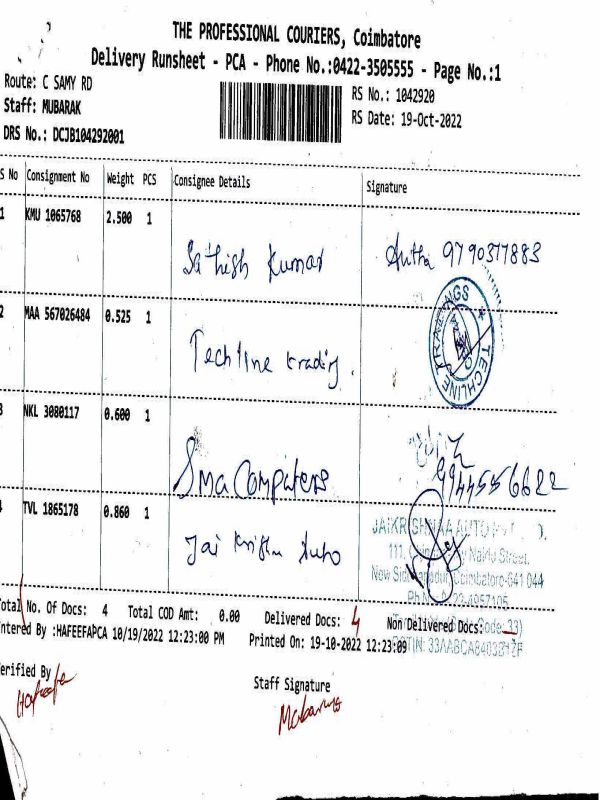 THE PROFESSIONAL COURIERS, Coimbatore
Delivery Runsheet - PCA - Phone No.:0422-3505555 - Page No.:1
Route: C SAMY RD
Staff: MUBARAK
DRS No.: DCJB104292001
RS No.: 1042920
RS Date: 19-Oct-2022
S No Consignment No Weight PCS Consignee Details Signature
1 KMU 1065768 2.500 1
Sathish Kumar 9790377883
2 MAA 567026484 0.525 1
Techline trading.
TECHLINE
3 NKL 3080117 0.600 1
Sma Computers 9944556622
4 TVL 1865178 0.860 1
Jai Krishna Auto
JAIKRISHNAA AUTO
111, Naidu Street,
New Sid Coimbatore-641 044
Total No. Of Docs: 4 Total COD Amt: 0.00 Delivered Docs: 4 Non Delivered Docs:
ntered By :HAFEEFAPCA 10/19/2022 12:23:00 PM Printed On: 19-10-2022 12:23:09
Code: 33)
erified By
Staff Signature
Hafeefa